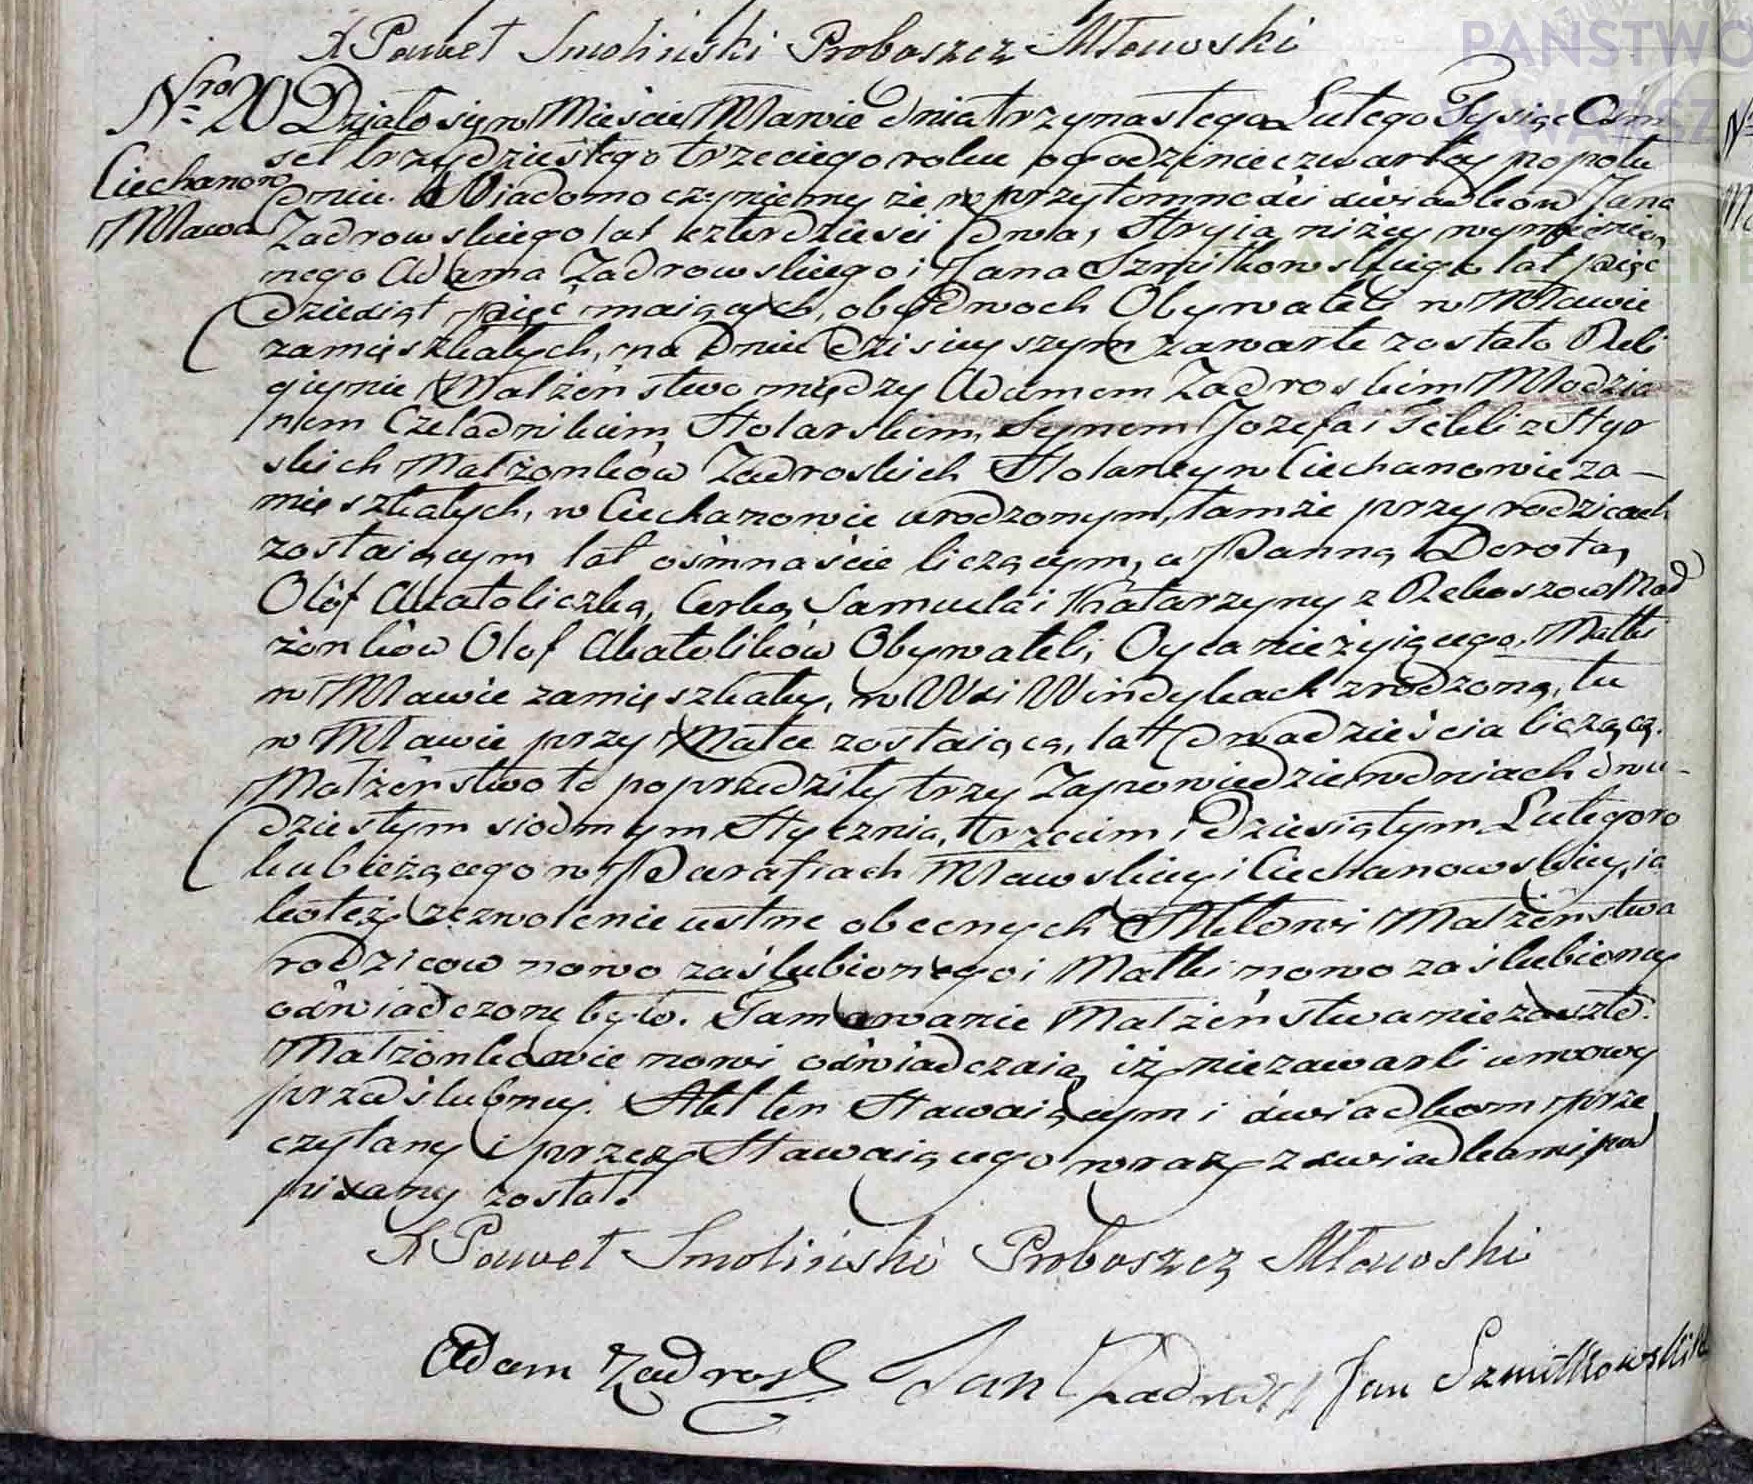 X Paweł Smoliński Proboszcz Mławski
Nro 20 Działo się w Mieście Mławie dnia trzynastego Lutego Tysiąc Ośm
Ciechanow
Mława
set trzydziestego trzeciego roku o godzinie czwartey popołu
dniu. Wiadomo czyniemy że w przytomności świadków Jana
Zadrowskiego lat czterdzieści dwa, Stryia niżey wymienio
nego Adama Zadrowskiego i Jana Szmitkowskiego lat pięć
dziesiąt pięć maiących, obydwoch Obywateli w Mławie
zamięszkałych, na dniu dzisieyszym zawarte zostało Reli
giynie Małżeństwo między Adamem Zadroskim Młodzia
nem Czeladnikiem Stolarskim, Synem Jozefa i Tekli z
skich Małżonków Zadroskich Stolarzy w Ciechanowie za-
mięszkałych, w Ciechanowie urodzonym, tamże przy rodzicach
zostaiącym lat ośmnaście liczącym, a Panną Dorotą,
Olóf Akatoliczką, Corką Samuela i Katarzyny z Małż
żonków Olof Akatolików Obywateli, Oyca nieżyiącego, Matki
w Mławie zamięszkałey, w Wsi Windykach zrodzoną, tu
w Mławie przy Matce zostaiącą, lat dwadzieścia liczącą.
Małżeństwo to poprzedziły trzy Zapowiedzie w dniach dwu-
dziestym siodmym Stycznia, trzecim i dziesiątym Lutego ro
ku bieżącego w Parafiach Mławskiey i Ciechanowskiey, ia
koteż zezwolenie ustne obecnych Aktowi Małżeństwa
rodzicow nowo zaślubionego i Matki nowo zaślubioney
oświadczone było. Tamowanie Małżeństwa nie zaszło.
Małżonkowie nowi oświadczaią iż nie zawarli umowy
przedślubney. Akt ten Stawaiącym i świadkom prze
czytany i przez Stawaiącego wraz z świadkami pod
pisany został.
X Paweł Smoliński Proboszcz Mławski
Adam Zadroski Jan Jan Szmitkowski
PAŃSTWO
W WARSZ